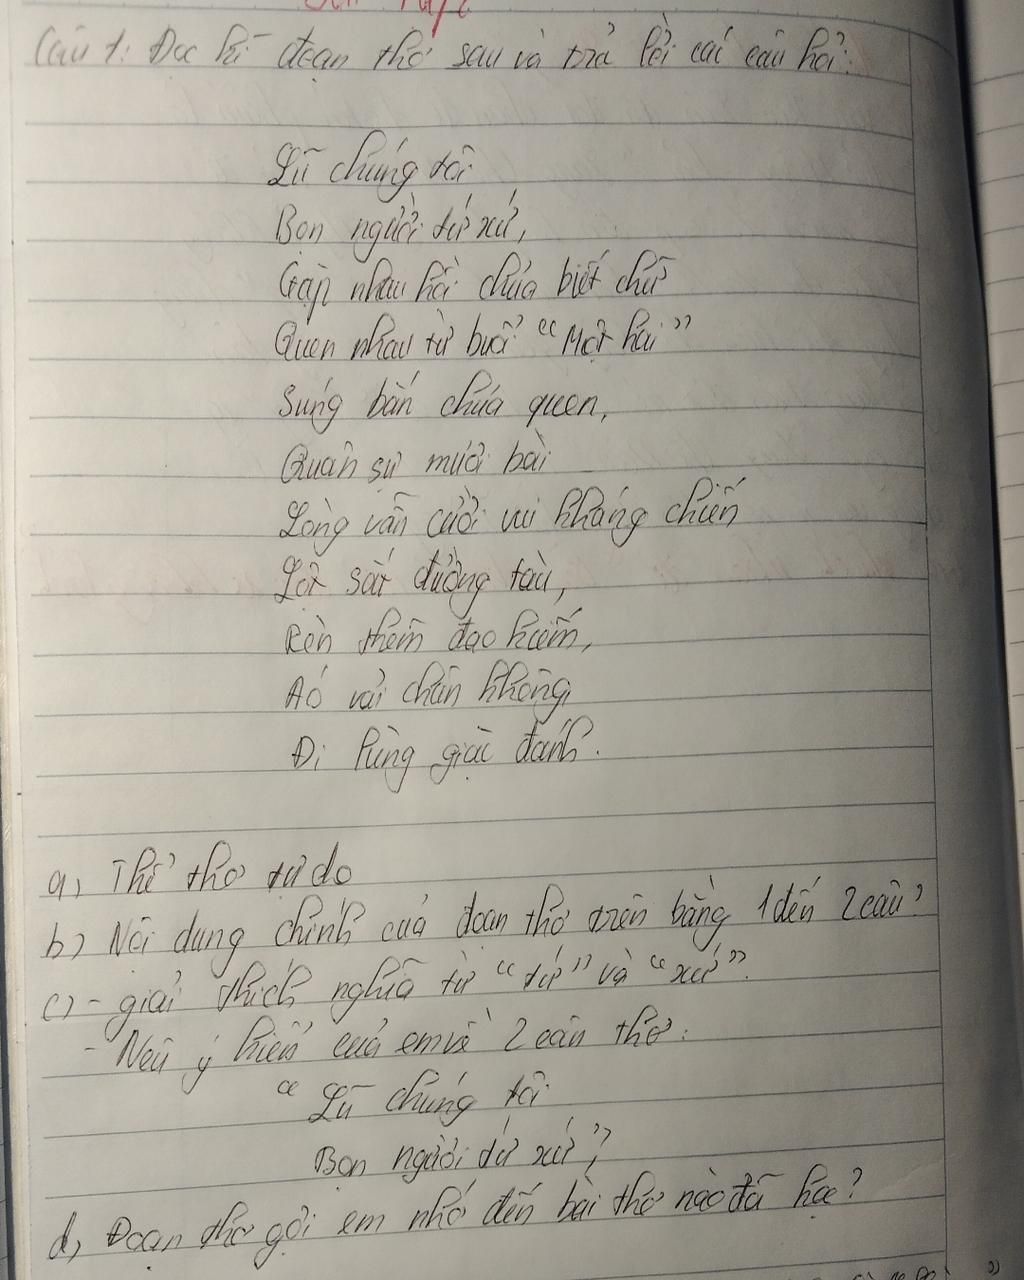 Câu 1: Đọc kĩ đoạn thơ sau và trả lời các câu hỏi:
Lũ chúng tôi
Bọn người tứ xứ,
Gặp nhau hồi chưa biết chữ
Quen nhau từ buổi "Một hai"
Súng bắn chưa quen,
Quân sự mươi bài
Lòng vẫn cười vui kháng chiến
Lột sắt đường tàu,
Rèn thêm đao kiếm,
Áo vải chân không,
Đi lùng giặc đánh.
a, Thể thơ tự do
b) Nội dung chính của đoạn thơ trên bằng 1 đến 2 câu?
c) - giải thích nghĩa từ "tứ" và "xứ".
- Nêu ý kiến của em về 2 câu thơ:
"Lũ chúng tôi
Bọn người tứ xứ"?
d, Đoạn thơ gợi em nhớ đến bài thơ nào đã học?